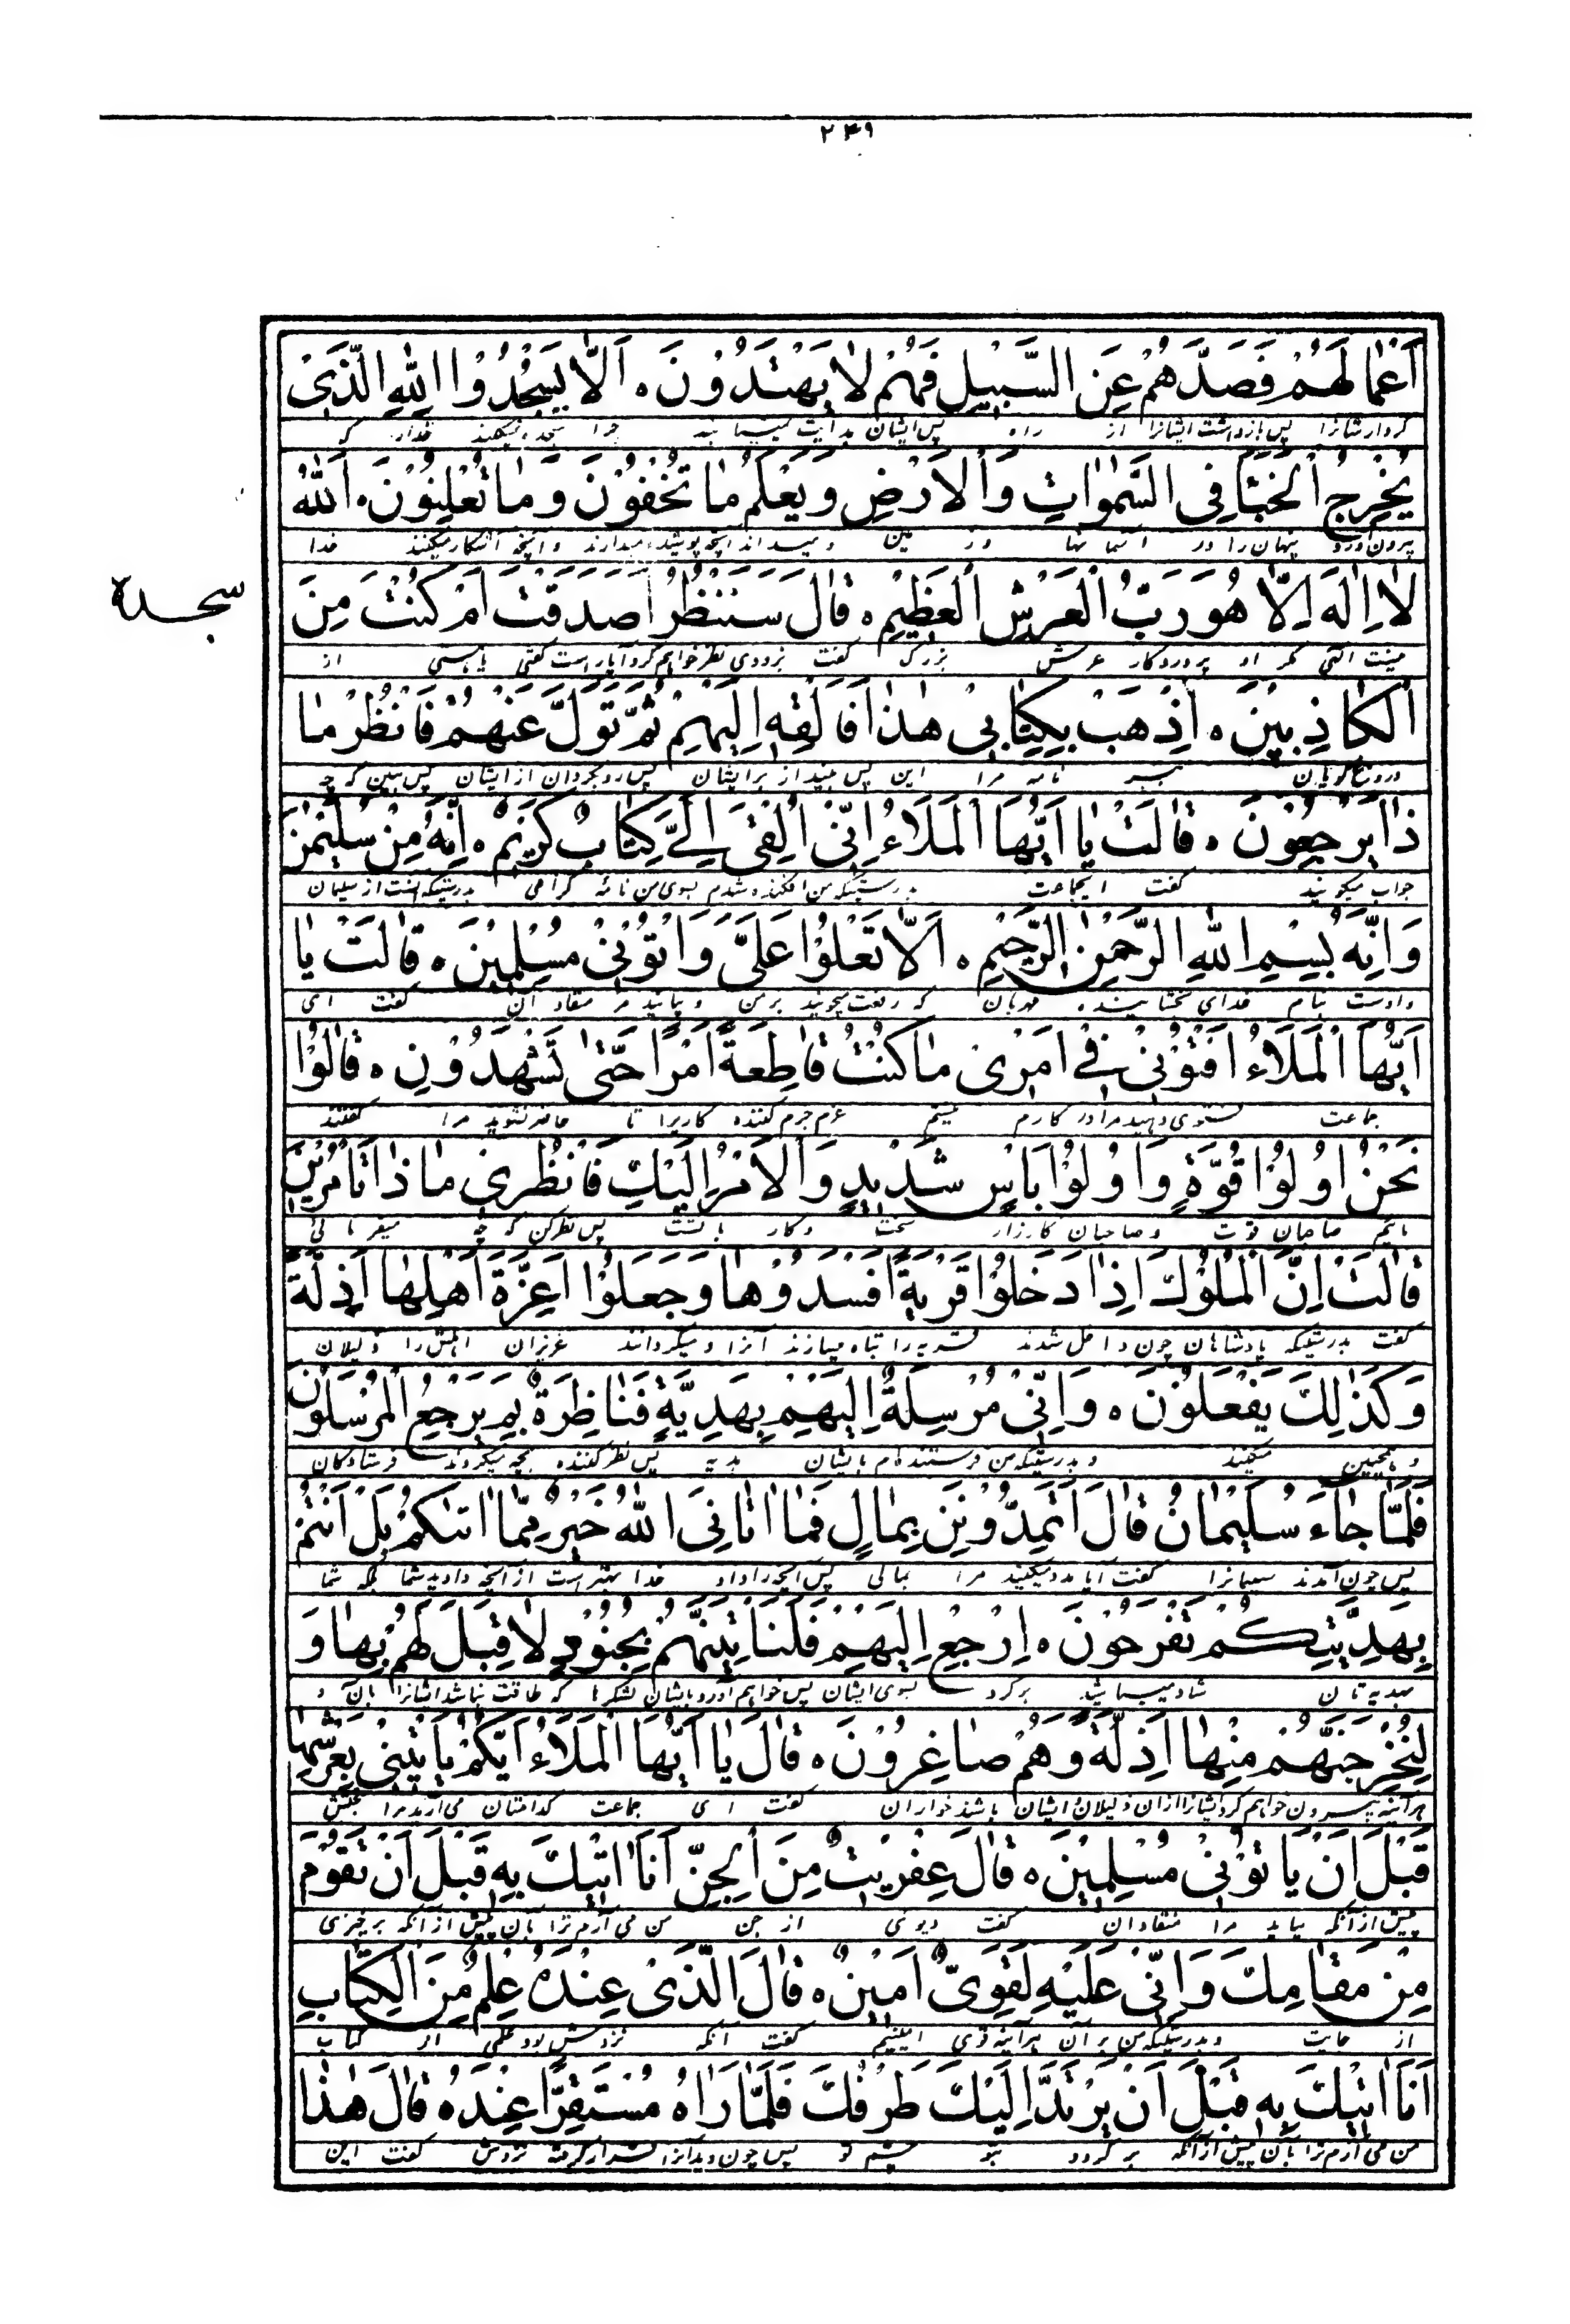 ۲۴۹
أَعْمَالَهُمْ فَصَدَّهُمْ عَنِ السَّبِيلِ فَهُمْ لَا يَهْتَدُونَ ه أَلَّا يَسْجُدُوا لِلّٰهِ الَّذِي
کردارشانرا پس بازداشت ایشانرا از راه پس ایشان هدایت نمییابند چرا سجده نمیکنند خدارا که
يُخْرِجُ الْخَبْءَ فِي السَّمٰوَاتِ وَالْأَرْضِ وَيَعْلَمُ مَا تُخْفُونَ وَمَا تُعْلِنُونَ ه اَللّٰهُ
بیرون آورد پنهان را در آسمانها و زمین و میداند آنچه پوشیده میدارند و آنچه آشکار میکنند خدا
لَا إِلٰهَ إِلَّا هُوَ رَبُّ الْعَرْشِ الْعَظِيمِ ه قَالَ سَنَنْظُرُ أَصَدَقْتَ أَمْ كُنْتَ مِنَ
سجدة
نیست الهی مگر او پروردگار عرش بزرگ گفت بزودی نظر خواهیم کرد آیا راست گفتی یا هستی از
الْكَاذِبِينَ ه اِذْهَبْ بِكِتَابِي هٰذَا فَأَلْقِهِ إِلَيْهِمْ ثُمَّ تَوَلَّ عَنْهُمْ فَانْظُرْ مَا
دروغ گویان ببر نامه مرا این پس بینداز بر ایشان پس رو بگردان از ایشان پس ببین که چه
ذَا يَرْجِعُونَ ه قَالَتْ يَا أَيُّهَا الْمَلَاءُ إِنِّي أُلْقِيَ إِلَيَّ كِتَابٌ كَرِيمٌ ه إِنَّهُ مِنْ سُلَيْمٰنَ
جواب میگویند گفت ایجماعت بدرستیکه من افکنده شدم بسوی من نامه گرامی بدرستیکه آنست از سلیمان
وَإِنَّهُ بِسْمِ اللّٰهِ الرَّحْمٰنِ الرَّحِيمِ ه أَلَّا تَعْلُوا عَلَيَّ وَأْتُونِي مُسْلِمِينَ ه قَالَتْ يَا
و اوست بنام خدای بخشاینده مهربان که رفعت مجویید بر من و بیایید مرا منقادان گفت ای
أَيُّهَا الْمَلَاءُ أَفْتُونِي فِي أَمْرِي مَا كُنْتُ قَاطِعَةً أَمْرًا حَتّٰى تَشْهَدُونِ ه قَالُوا
جماعت فتوی دهید مرا در کارم نیستم عزم جزم کننده کاریرا تا حاضر نشوید مرا گفتند
نَحْنُ أُولُوا قُوَّةٍ وَأُولُوا بَأْسٍ شَدِيدٍ وَالْأَمْرُ إِلَيْكِ فَانْظُرِي مَاذَا تَأْمُرِينَ
مائیم صاحبان قوت و صاحبان کارزار سخت و کار با تست پس نظر کن که چه میفرمائی
قَالَتْ إِنَّ الْمُلُوكَ إِذَا دَخَلُوا قَرْيَةً أَفْسَدُوهَا وَجَعَلُوا أَعِزَّةَ أَهْلِهَا أَذِلَّةً
گفت بدرستیکه پادشاهان چون داخل شدند قریه را تباه میسازند آنرا و میگردانند عزیزان اهلش را ذلیلان
وَكَذٰلِكَ يَفْعَلُونَ ه وَإِنِّي مُرْسِلَةٌ إِلَيْهِمْ بِهَدِيَّةٍ فَنَاظِرَةٌ بِمَ يَرْجِعُ الْمُرْسَلُونَ
و همچنین میکنند و بدرستیکه من فرستنده‌ام بایشان هدیه پس نظر کننده بچه میگردند فرستادگان
فَلَمَّا جَاءَ سُلَيْمَانَ قَالَ أَتُمِدُّونَنِ بِمَالٍ فَمَا اٰتَانِيَ اللّٰهُ خَيْرٌ مِمَّا اٰتٰيكُمْ بَلْ أَنْتُمْ
پس چون آمدند سلیمانرا گفت آیا مدد میکنید مرا بمالی پس آنچه را داد خدا بهتر است از آنچه داد بشما بلکه شما
بِهَدِيَّتِكُمْ تَفْرَحُونَ ه اِرْجِعْ إِلَيْهِمْ فَلَنَأْتِيَنَّهُمْ بِجُنُودٍ لَا قِبَلَ لَهُمْ بِهَا وَ
بهدیه تان شاد میباشید برگرد بسوی ایشان پس خواهیم آورد بایشان لشکرها که طاقت نباشد ایشانرا بآن و
لَنُخْرِجَنَّهُمْ مِنْهَا أَذِلَّةً وَهُمْ صَاغِرُونَ ه قَالَ يَا أَيُّهَا الْمَلَاءُ أَيُّكُمْ يَأْتِينِي بِعَرْشِهَا
هرآینه بیرون خواهیم کرد ایشانرا از آن ذلیلان و ایشان باشند خواران گفت ای جماعت کدامتان می‌آرید مرا تختش
قَبْلَ أَنْ يَأْتُونِي مُسْلِمِينَ ه قَالَ عِفْرِيتٌ مِنَ الْجِنِّ أَنَا اٰتِيكَ بِهِ قَبْلَ أَنْ تَقُومَ
پیش از آنکه بیاید مرا منقادان گفت دیوی از جن من می‌آرم ترا بآن پیش از آنکه برخیزی
مِنْ مَقَامِكَ وَإِنِّي عَلَيْهِ لَقَوِيٌّ أَمِينٌ ه قَالَ الَّذِي عِنْدَهُ عِلْمٌ مِنَ الْكِتَابِ
از جایت و بدرستیکه من بر آن هرآینه قوی امینم گفت آنکه نزدش بود علمی از کتاب
أَنَا اٰتِيكَ بِهِ قَبْلَ أَنْ يَرْتَدَّ إِلَيْكَ طَرْفُكَ فَلَمَّا رَاٰهُ مُسْتَقِرًّا عِنْدَهُ قَالَ هٰذَا
من می‌آرم ترا بآن پیش از آنکه برگردد بتو چشم تو پس چون دید آنرا قرار گرفته نزدش گفت این